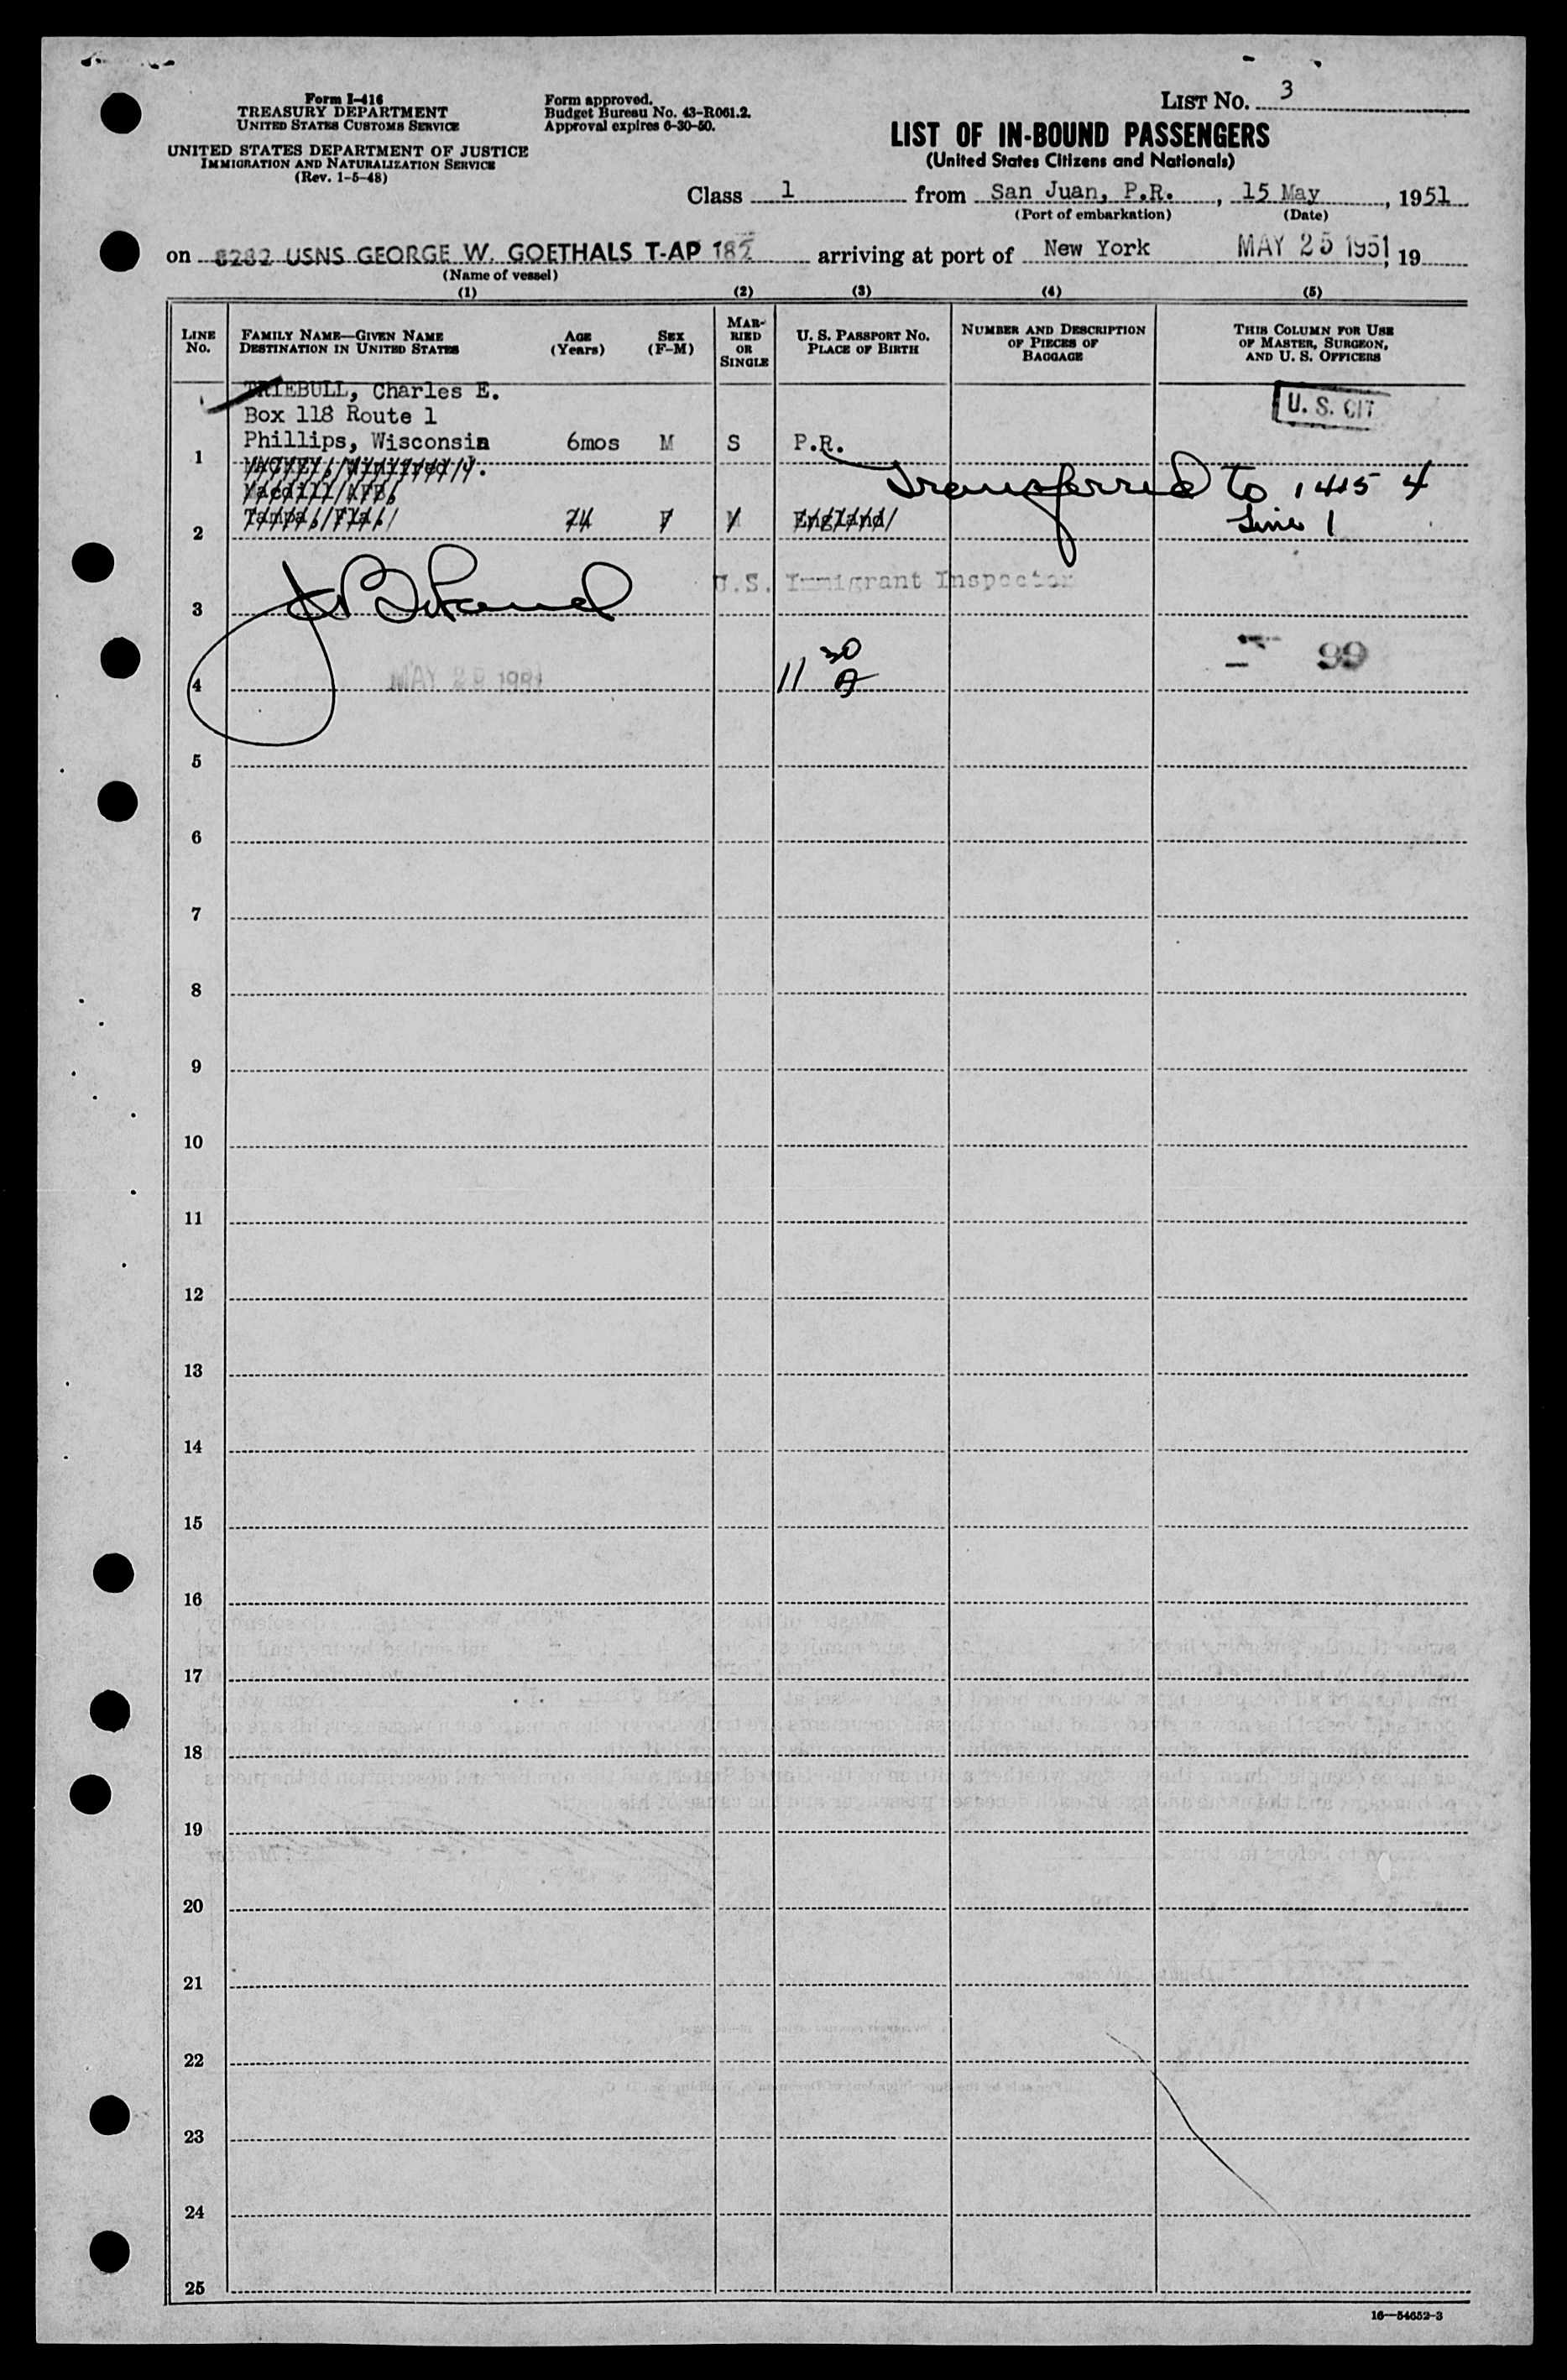 LIST No. 3
Form I-416
TREASURY DEPARTMENT
UNITED STATES CUSTOMS SERVICE
UNITED STATES DEPARTMENT OF JUSTICE
IMMIGRATION AND NATURALIZATION SERVICE
(Rev. 1-5-48)
Form approved.
Budget Bureau No. 43-R061.2.
Approval expires 6-30-50.
LIST OF IN-BOUND PASSENGERS
(United States Citizens and Nationals)
Class 1 from San Juan, P.R., 15 May, 1951
(Port of embarkation) (Date)
on 8282 USNS GEORGE W. GOETHALS T-AP 182 arriving at port of New York MAY 25 1951, 19
(Name of vessel)
(1) (2) (3) (4) (5)
LINE No.
FAMILY NAME—GIVEN NAME
DESTINATION IN UNITED STATES
AGE
(Years)
SEX
(F-M)
MARRIED OR SINGLE
U. S. PASSPORT No.
PLACE OF BIRTH
NUMBER AND DESCRIPTION
OF PIECES OF
BAGGAGE
THIS COLUMN FOR USE
OF MASTER, SURGEON,
AND U. S. OFFICERS
TRIEBULL, Charles E.
Box 118 Route 1
Phillips, Wisconsin 6mos M S P.R.
U. S. CIT
1
Winifred J.
Macdill AFB,
Tampa, Fla. 24 F M England
Transferred to 1415 4
Line 1
2
U.S. Immigrant Inspector
3
11 30 A
99
4
5
6
7
8
9
10
11
12
13
14
15
16
17
18
19
20
21
22
23
24
25
16—54652-3